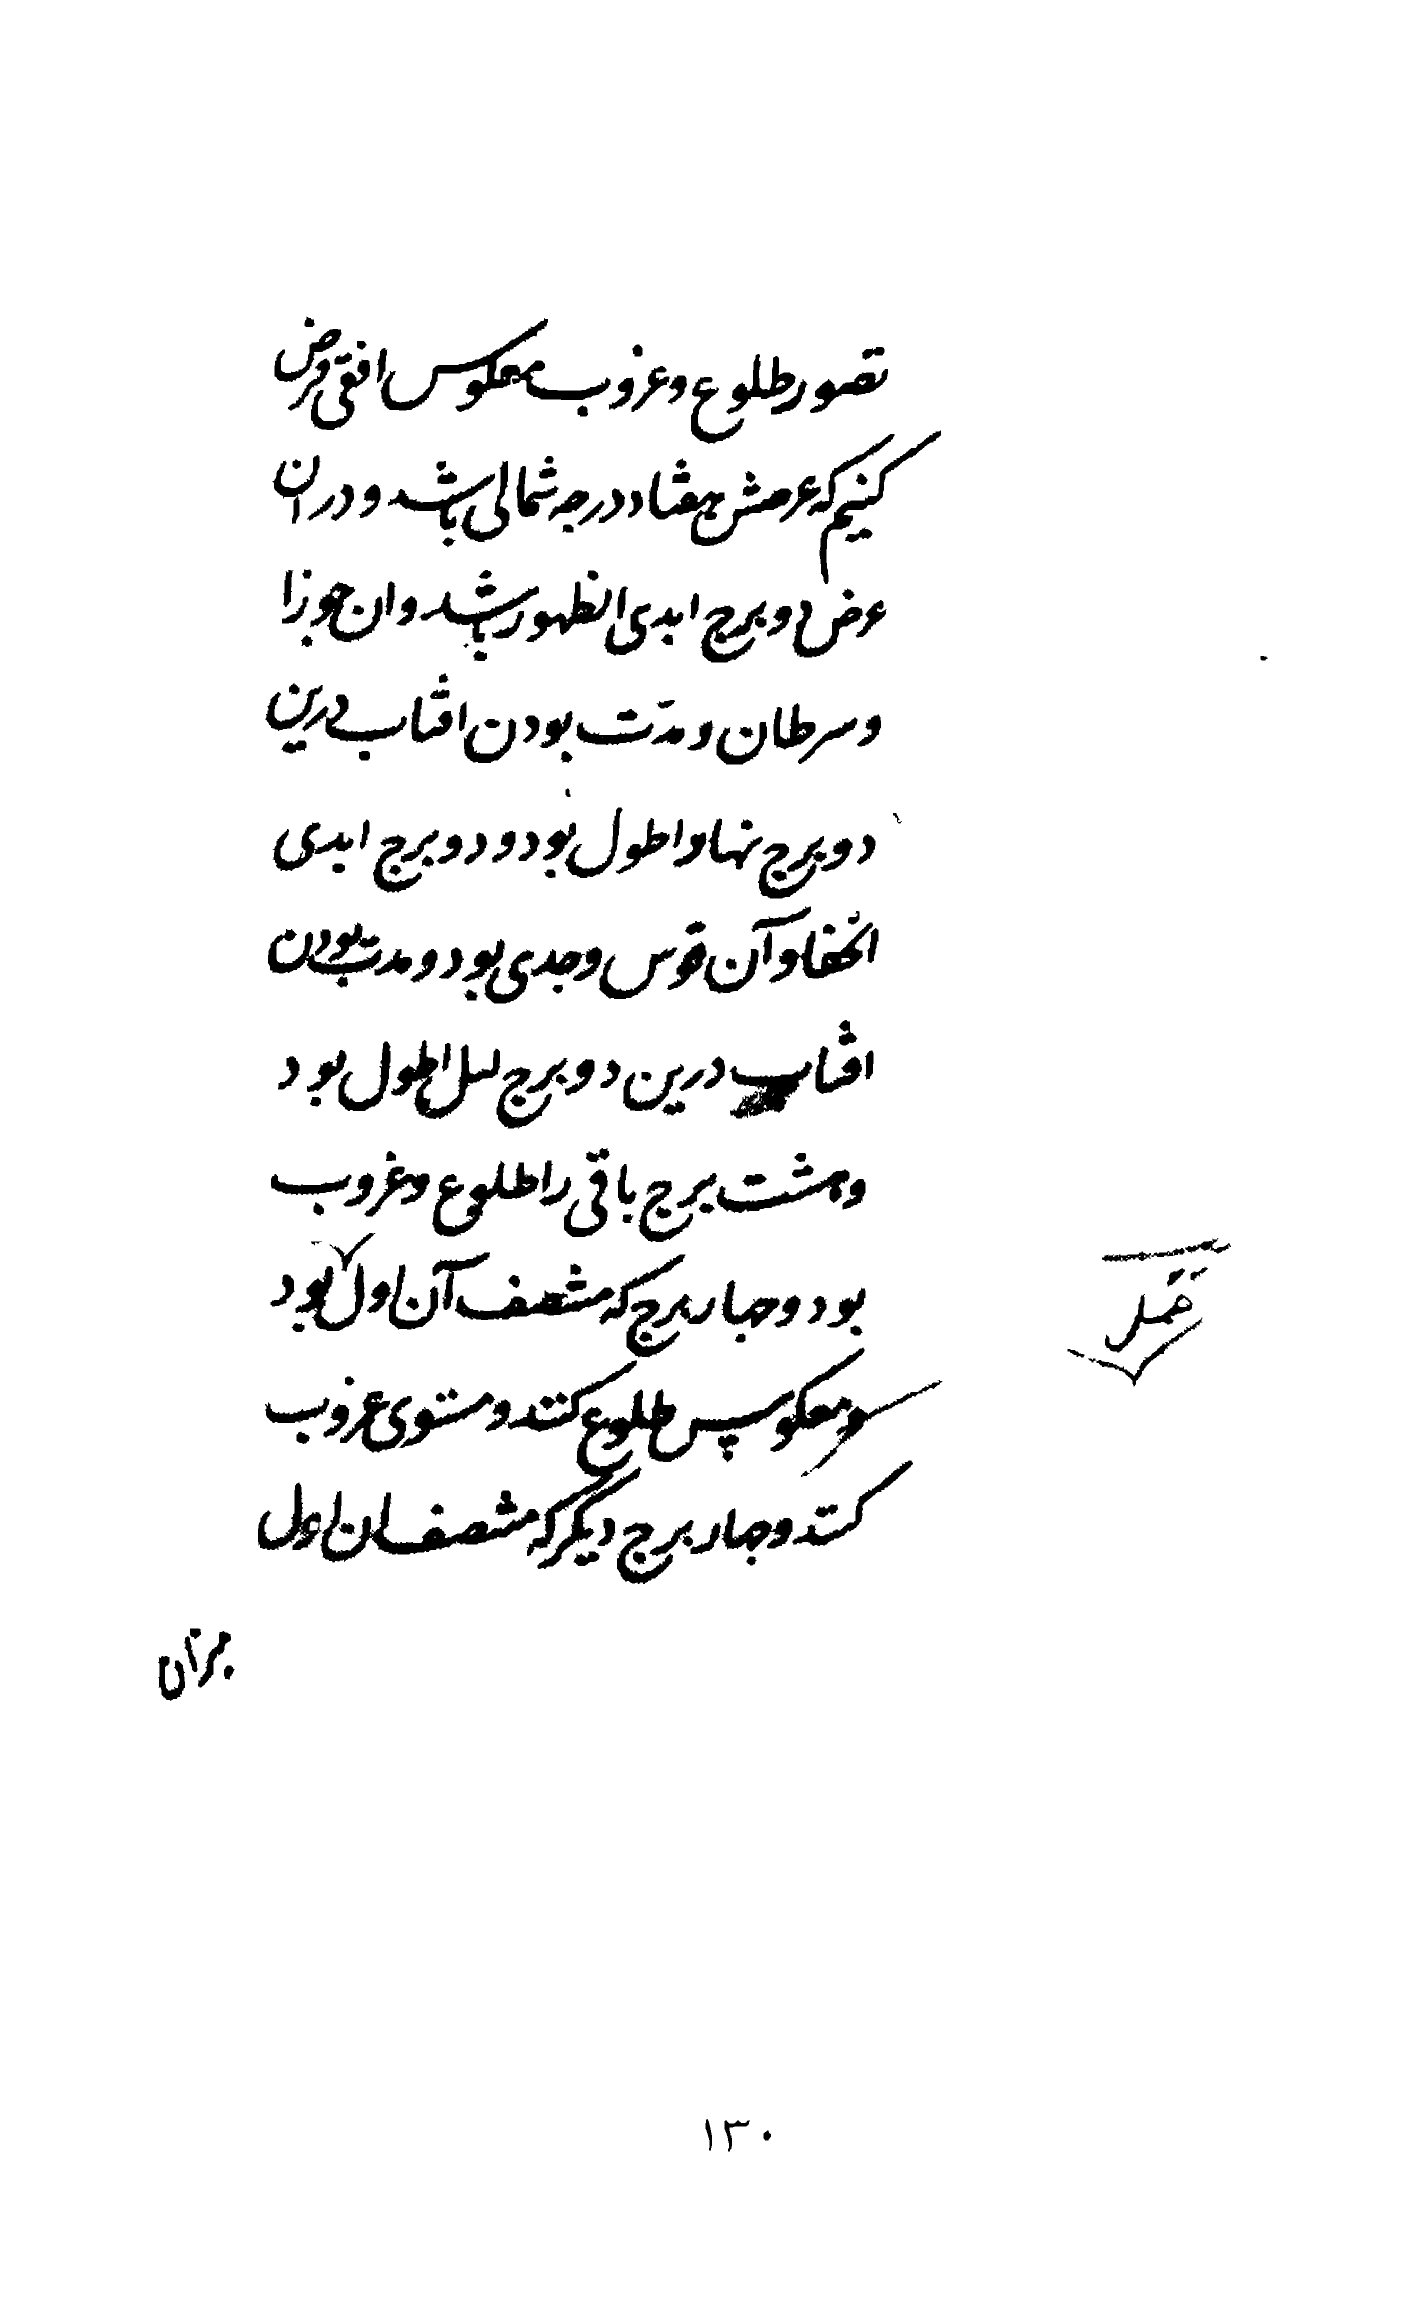 تصور طلوع و غروب معکوس افقی فرض
کنیم که عرضش هفتاد درجه شمالی باشد و در ان
عرض دو برج ابدی الظهور باشد وان جوزا
و سرطان و مدّت بودن افتاب درین
دو برج نهار اطول بود و دو برج ابدی
الخفا و آن قوس و جدی بود و مدت بودن
افتاب درین دو برج لیل اطول بود
و هشت برج باقی را طلوع و غروب
بود و چهار برج که منتصف آن اول بود
حمل
و معکوس طلوع کنند و مستوی غروب
کنند و چهار برج دیگر که منتصف ان اول
میزان
۱۳۰